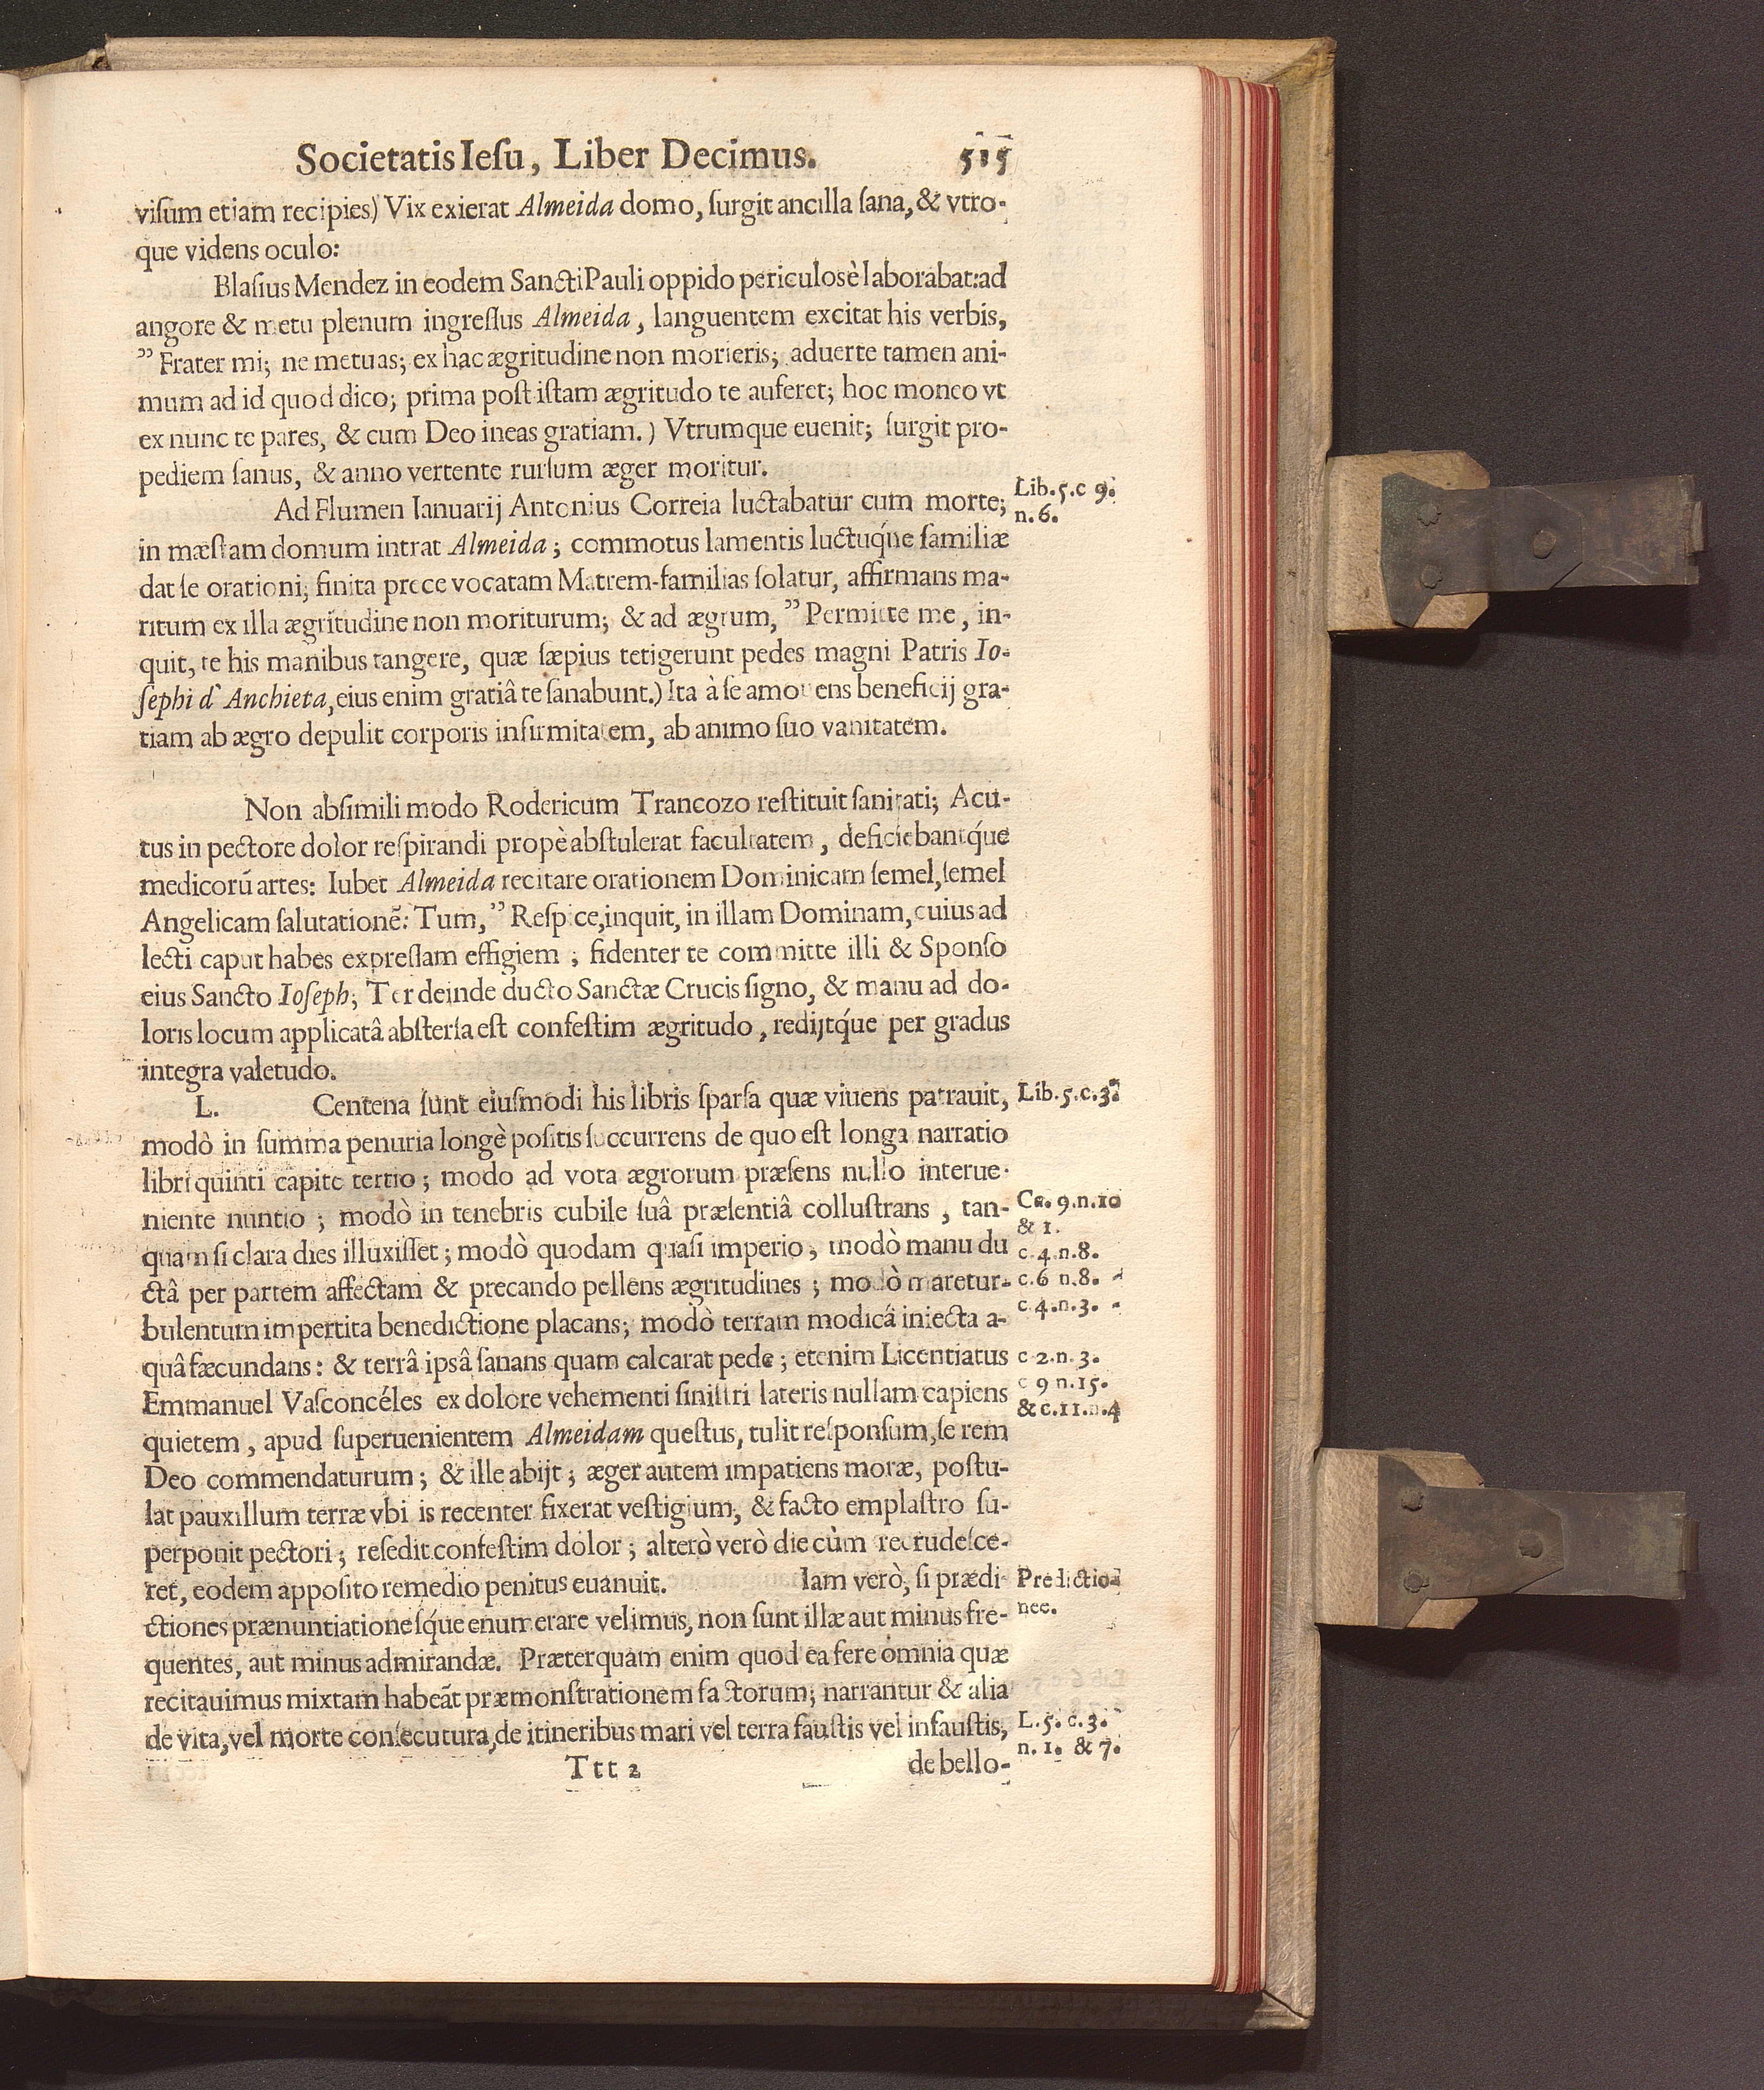 Societatis Iesu, Liber Decimus. 515
visum etiam recipies) Vix exierat Almeida domo, surgit ancilla sana, & vtro-
que videns oculo:
Blasius Mendez in eodem Sancti Pauli oppido periculosè laborabat: ad
angore & metu plenum ingressus Almeida, languentem excitat his verbis,
” Frater mi; ne metuas; ex hac ægritudine non morieris; aduerte tamen ani-
mum ad id quod dico; prima post istam ægritudo te auferet; hoc moneo vt
ex nunc te pares, & cum Deo ineas gratiam.) Vtrumque euenit; surgit pro-
pediem sanus, & anno vertente rursum æger moritur.
Ad Flumen Ianuarij Antonius Correia luctabatur cum morte;
Lib. 5. c 9.
n. 6.
in mæstam domum intrat Almeida; commotus lamentis luctuq́ue familiæ
dat se orationi; finita prece vocatam Matrem-familias solatur, affirmans ma-
ritum ex illa ægritudine non moriturum; & ad ægrum, ” Permitte me, in-
quit, te his manibus tangere, quæ sæpius tetigerunt pedes magni Patris Io-
sephi d' Anchieta, eius enim gratiâ te sanabunt.) Ita à se amouens beneficij gra-
tiam ab ægro depulit corporis infirmitatem, ab animo suo vanitatem.
Non absimili modo Rodericum Trancozo restituit sanitati; Acu-
tus in pectore dolor respirandi propè abstulerat facultatem, deficiebantq́ue
medicorũ artes: Iubet Almeida recitare orationem Dominicam semel, semel
Angelicam salutationẽ: Tum, ” Respice, inquit, in illam Dominam, cuius ad
lecti caput habes expressam effigiem; fidenter te committe illi & Sponso
eius Sancto Ioseph; Ter deinde ducto Sanctæ Crucis signo, & manu ad do-
loris locum applicatâ abstersa est confestim ægritudo, redijtq́ue per gradus
integra valetudo.
L. Centena sunt eiusmodi his libris sparsa quæ viuens patrauit,
Lib. 5. c. 3.
modò in summa penuria longè positis succurrens de quo est longa narratio
libri quinti capite tertio; modo ad vota ægrorum præsens nullo interue-
niente nuntio; modò in tenebris cubile suâ præsentiâ collustrans, tan-
Ca. 9. n. 10
& 1.
quam si clara dies illuxisset; modò quodam quasi imperio, modò manu du
c. 4. n. 8.
ctâ per partem affectam & precando pellens ægritudines; modò mare tur-
c. 6 n. 8.
bulentum impertita benedictione placans; modò terram modicâ iniecta a-
c 4. n. 3.
quâ fæcundans: & terrâ ipsâ sanans quam calcarat pede; etenim Licentiatus
c 2. n. 3.
Emmanuel Vasconcéles ex dolore vehementi sinistri lateris nullam capiens
c 9 n. 15.
& c. 11. n. 4
quietem, apud superuenientem Almeidam questus, tulit responsum, se rem
Deo commendaturum; & ille abijt; æger autem impatiens moræ, postu-
lat pauxillum terræ vbi is recenter fixerat vestigium, & facto emplastro su-
perponit pectori; resedit confestim dolor; alterò verò die cùm recrudesce-
ret, eodem apposito remedio penitus euanuit. Iam verò, si prædi
Predictio-
nee.
ctiones prænuntiationesq́ue enumerare velimus, non sunt illæ aut minus fre-
quentes, aut minus admirandæ. Præterquam enim quod ea fere omnia quæ
recitauimus mixtam habeãt præmonstrationem factorum; narrantur & alia
de vita, vel morte consecutura, de itineribus mari vel terra faustis vel infaustis,
L. 5. c. 3.
n. 1. & 7.
Ttt 2 de bello-